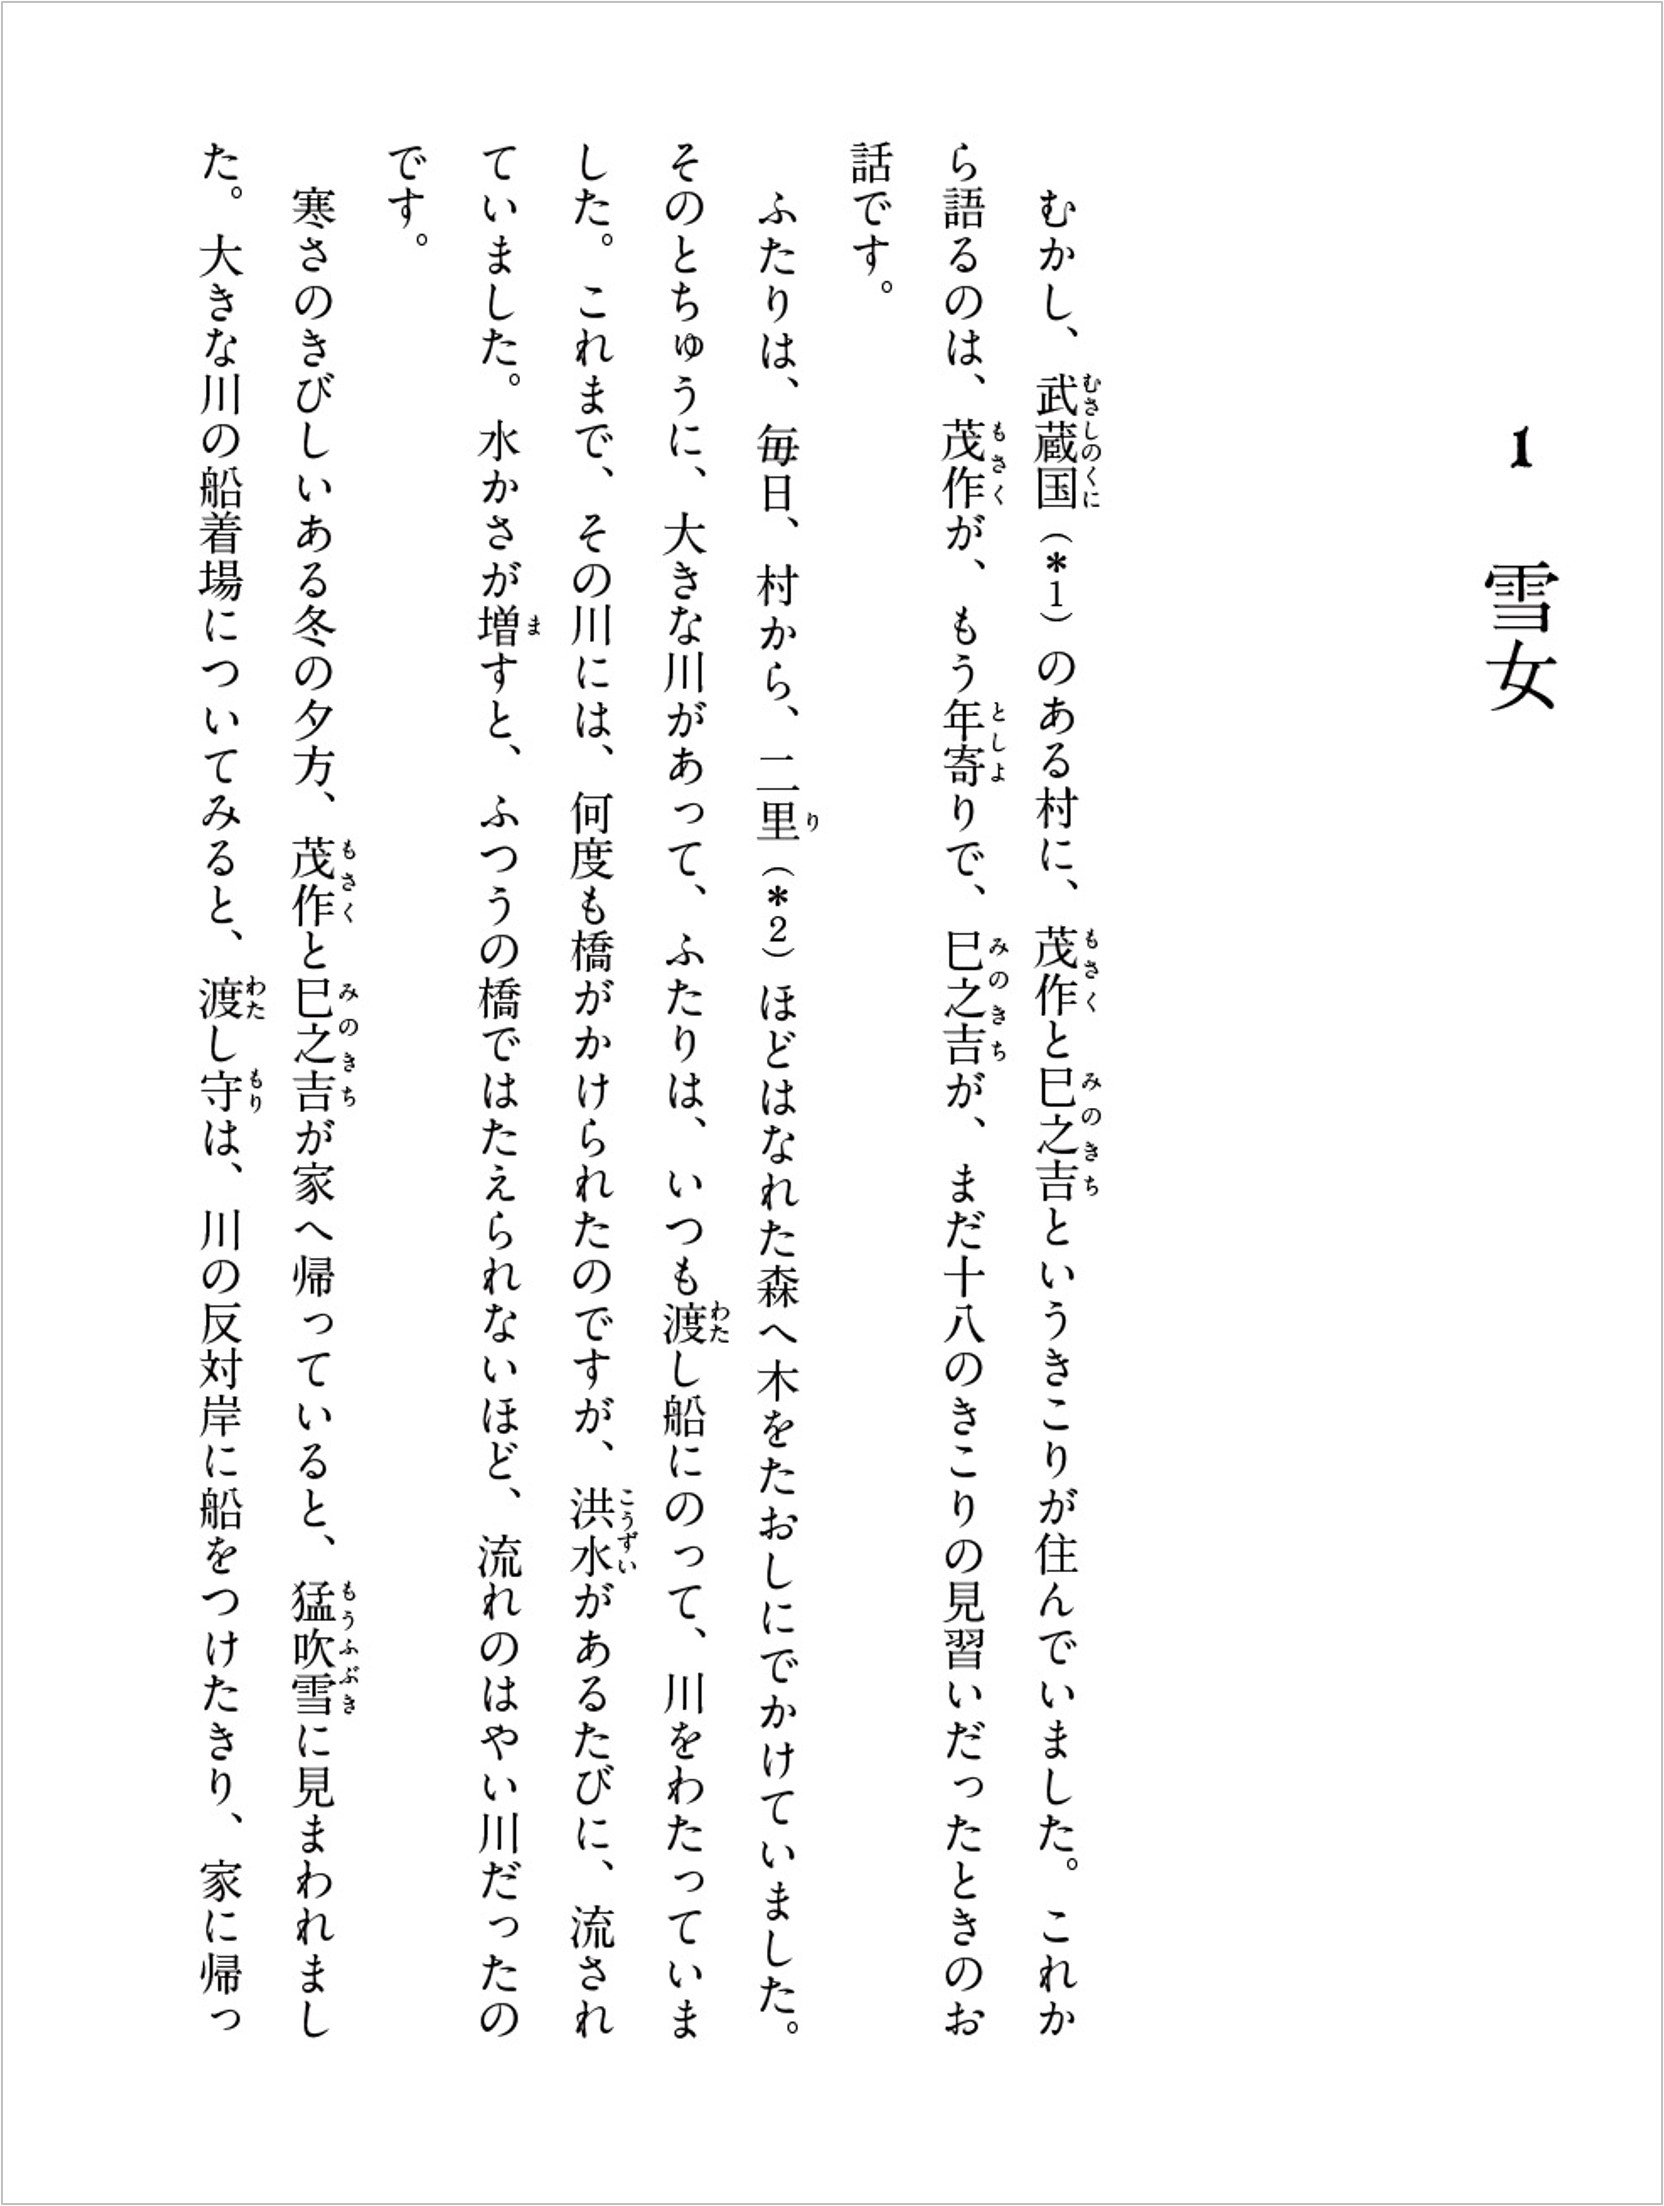 1 雪女
むかし、武蔵国（＊1）のある村に、茂作と巳之吉というきこりが住んでいました。これか
ら語るのは、茂作が、もう年寄りで、巳之吉が、まだ十八のきこりの見習いだったときのお
話です。
ふたりは、毎日、村から、二里（＊2）ほどはなれた森へ木をたおしにでかけていました。
そのとちゅうに、大きな川があって、ふたりは、いつも渡し船にのって、川をわたっていま
した。これまで、その川には、何度も橋がかけられたのですが、洪水があるたびに、流され
ていました。水かさが増すと、ふつうの橋ではたえられないほど、流れのはやい川だったの
です。
寒さのきびしいある冬の夕方、茂作と巳之吉が家へ帰っていると、猛吹雪に見まわれまし
た。大きな川の船着場についてみると、渡し守は、川の反対岸に船をつけたきり、家に帰っ